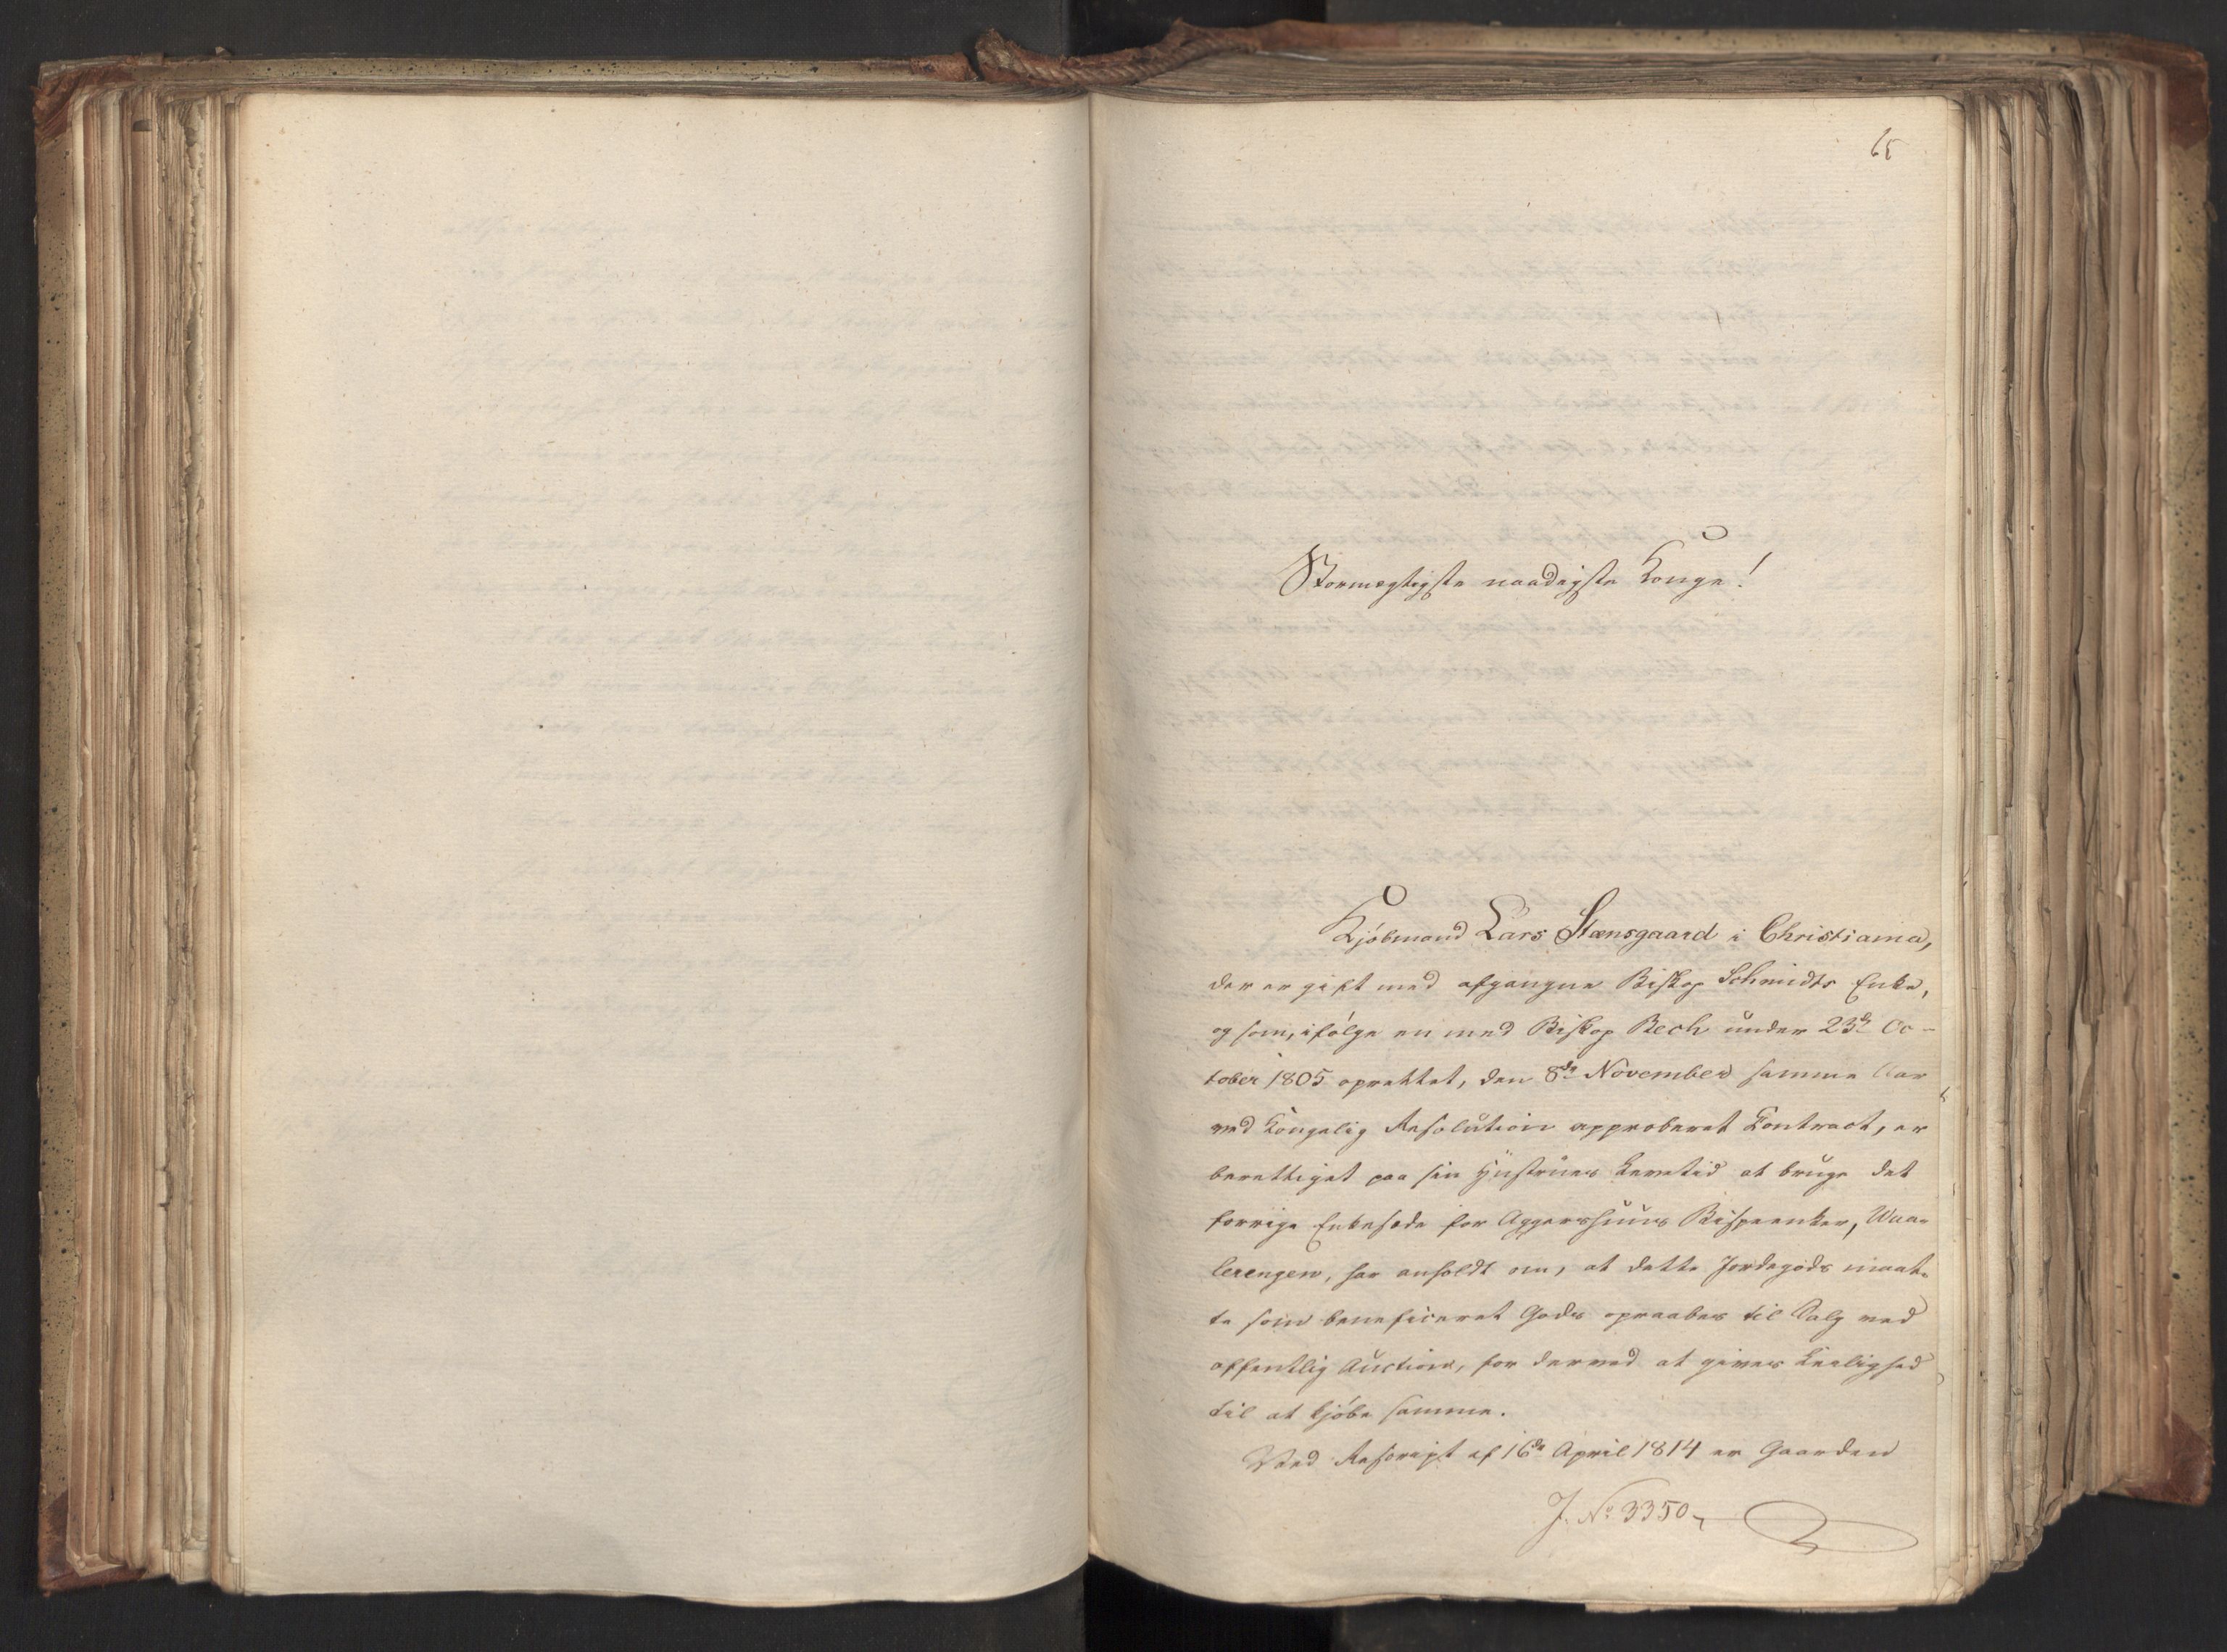 65
Stormægtigste naadigste Konge!
Kjøbmand Lars Stensgaard i Christiania,
der er gift med afgangne Biskop Schmidts Enke,
og som, ifølge en med Biskop Bech under 23de Oc-
tober 1805 oprettet, den 8de November samme Aar
ved kongelig Resolution approberet Contract, er
berettiget paa sin Hustrues Levetid at bruge det
forrige Enkesæde for Aggershuus Bispeenker, Waa-
lerengen, har anholdt om, at dette Jordegods maat-
te som beneficeret Gods opraabes til Salg ved
offentlig Auction, for derved at gives Leilighed
til at kjøbe samme.
Ved Rescript af 16de April 1814 er Gaarden
J. No 3350